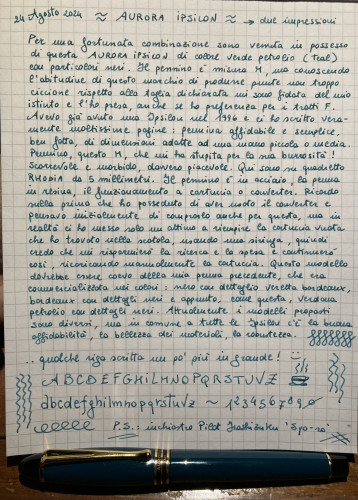 24 Agosto 2024 ≈ AURORA IPSILON ≈ → due impressioni
Per una fortunata combinazione sono venuta in possesso
di questa AURORA IPSILON di colore verde petrolio (Teal)
con particolari neri. Il pennino è misura M, ma conoscendo
l'abitudine di questo marchio di produrre punte non troppo
ciccione rispetto alla taglia dichiarata mi sono fidata del mio
istinto e l'ho presa, anche se ho preferenza per i tratti F.
Avevo già avuto una Ipsilon nel 1996 e ci ho scritto vera-
mente moltissime pagine: pennina affidabile e semplice,
ben fatta, di dimensioni adatte ad una mano piccola o media.
Pennino, questo M, che mi ha stupita per la sua burrosità!
Scorrevole e morbido, davvero piacevole. Qui sono su quadretto
RHODIA da 5 millimetri. Il pennino è in acciaio, la penna
in resina, il funzionamento a cartuccia o converter. Ricordo
sulla prima che ho posseduto di aver usato il converter e
pensavo inizialmente di comprarlo anche per questa, ma in
realtà ci ho messo solo un attimo a riempire la cartuccia vuota
che ho trovato nella scatola, usando una siringa, quindi
credo che mi risparmierò la ricerca e la spesa e continuerò
così, ricaricando manualmente la cartuccia. Questo modello
dovrebbe essere coevo della mia penna precedente, che era
commercializzata nei colori: nero con dettaglio veretta bordeaux,
bordeaux con dettagli neri e appunto, come questa, verdone
petrolio con dettagli neri. Attualmente i modelli proposti
sono diversi, ma in comune a tutte le Ipsilon c'è la buona
affidabilità, la bellezza dei materiali, la robustezza.
... qualche riga scritto un po' più in grande!
ABCDEFGHILMNOPQRSTUVZ
abcdefghilmnopqrstuvz ~ 1234567890
P.S.: inchiostro Pilot Iroshizuku "Syo-ro"